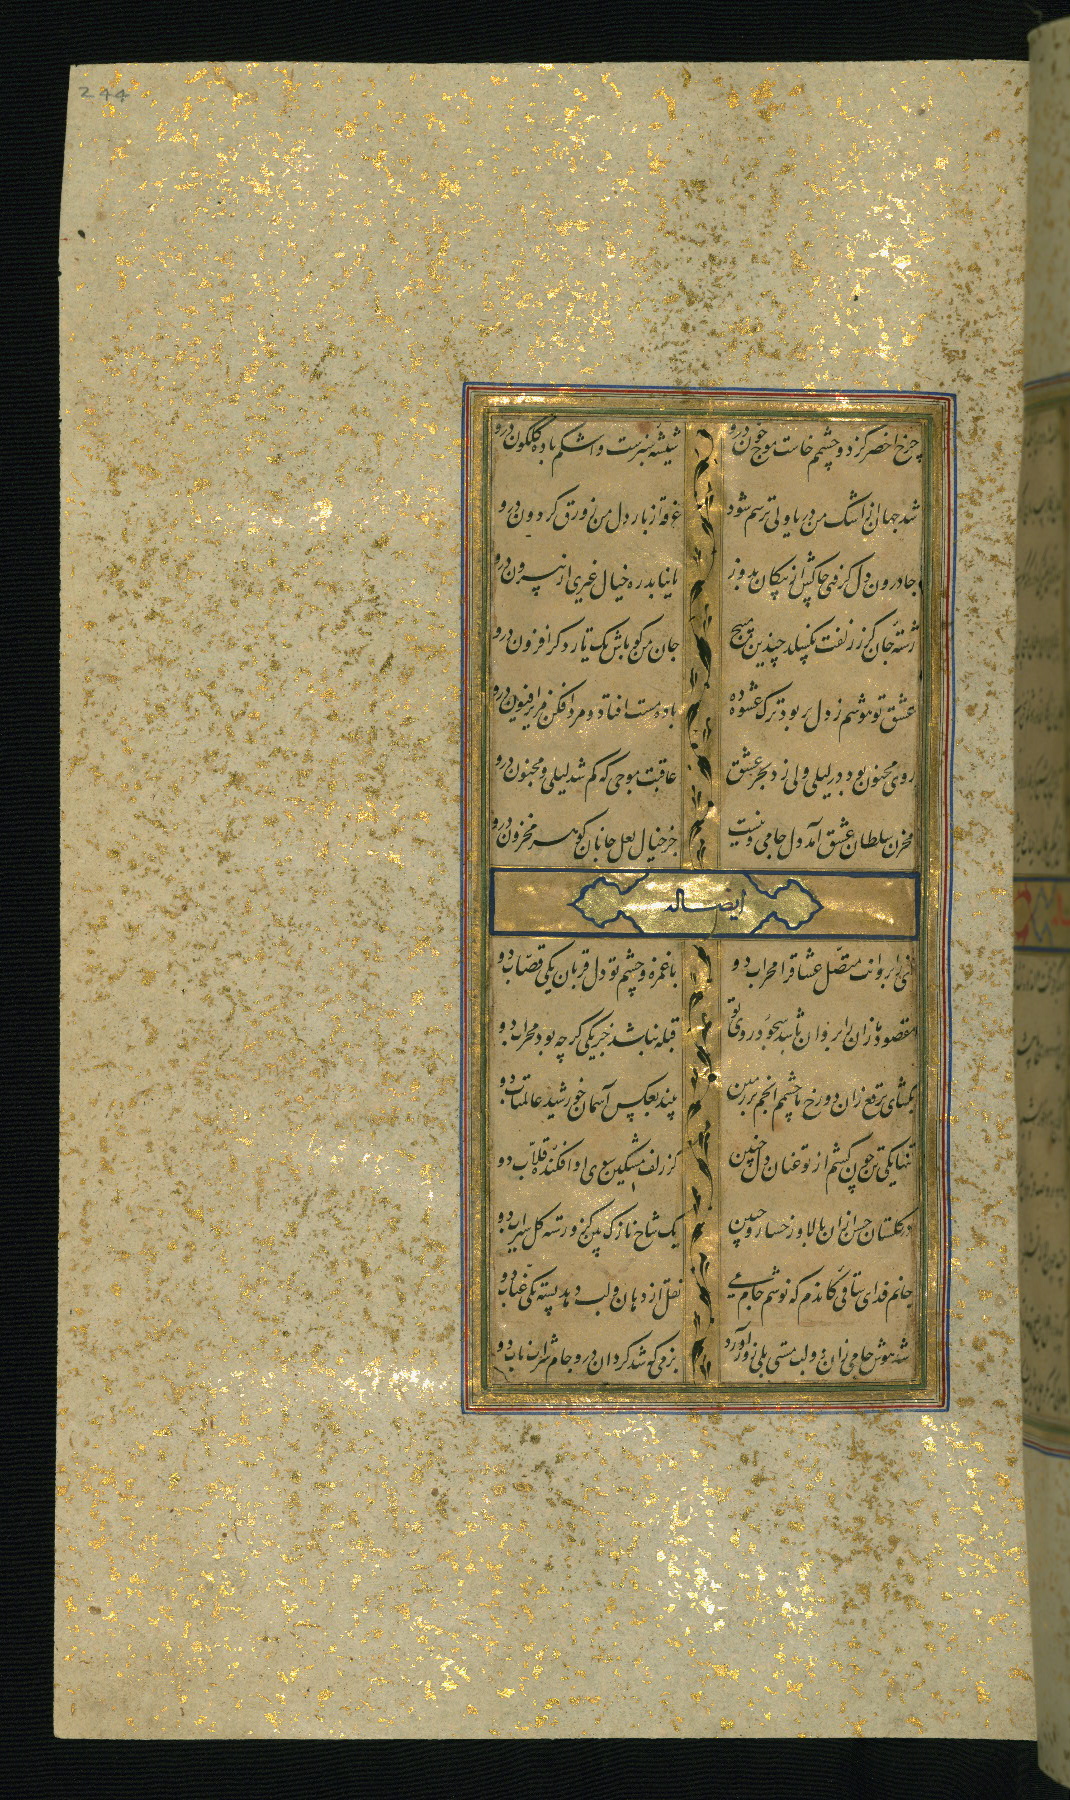 244
چرخ اخضر کز دو چشمم خاست موج خون درو
شیشه سبزست و اشکم باده گلگون درو
شد جهان از اشک من دریا ولی ترسم شود
غرقه از بار دل من زورق گردون درو
جا درون دل گرفتی چاکش از پیکان بدوز
تا نیابد ره خیال غیری از بیرون درو
رشته جان کز زلفت بگسلد چندین مپیچ
جان من گو باش یک تار دگر افزون درو
عشق تو هوشم ز دل بربود ترک عشوه ده
باده مست افتاد و مردافکن مریز افیون درو
روی مجنون بود در لیلی ولی زد بحر عشق
عاقبت موجی که گم شد لیلی و مجنون درو
مخزن سلطان عشق آمد دل جامی و نیست
جز خیال لعل جانان گوهر مخزون درو
ایضا له
ای ز ابروانت متصل عشاق را محراب دو
با غمزه و چشم تو دل قربان یکی قصاب دو
مقصود ازان ابروان باشد سجود روی تو
قبله نباشد جز یکی گر چه بود محراب دو
بگشای برقع زان دو رخ تا چشم انجم بر زمین
بیند بعکس آسمان خورشید عالمتاب دو
تنها یکی تن چون کشم از تو عنان دل چنین
کز زلف مشکین سوی او افکنده قلاب دو
در گلستان حسن ازان بالا و رخسار و جبین
یک شاخ نازک بین کزو رسته گل سیراب دو
جانم فدای ساقی کاندم که نوشم جام می
نقل از دهان و لب دهد پسته یکی عناب دو
شد هوش جامی زان دو لب مستی بلی زور آورد
بزمی که شد گردان درو جام شراب ناب دو